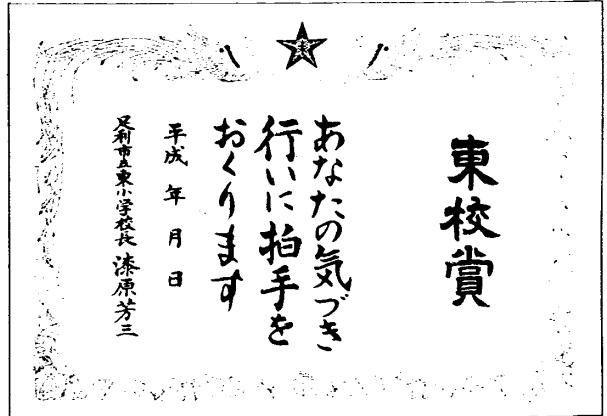 東校賞
あなたの気づき
行いに拍手を
おくります
平成 年 月 日
足利市立東小学校長 漆原芳三